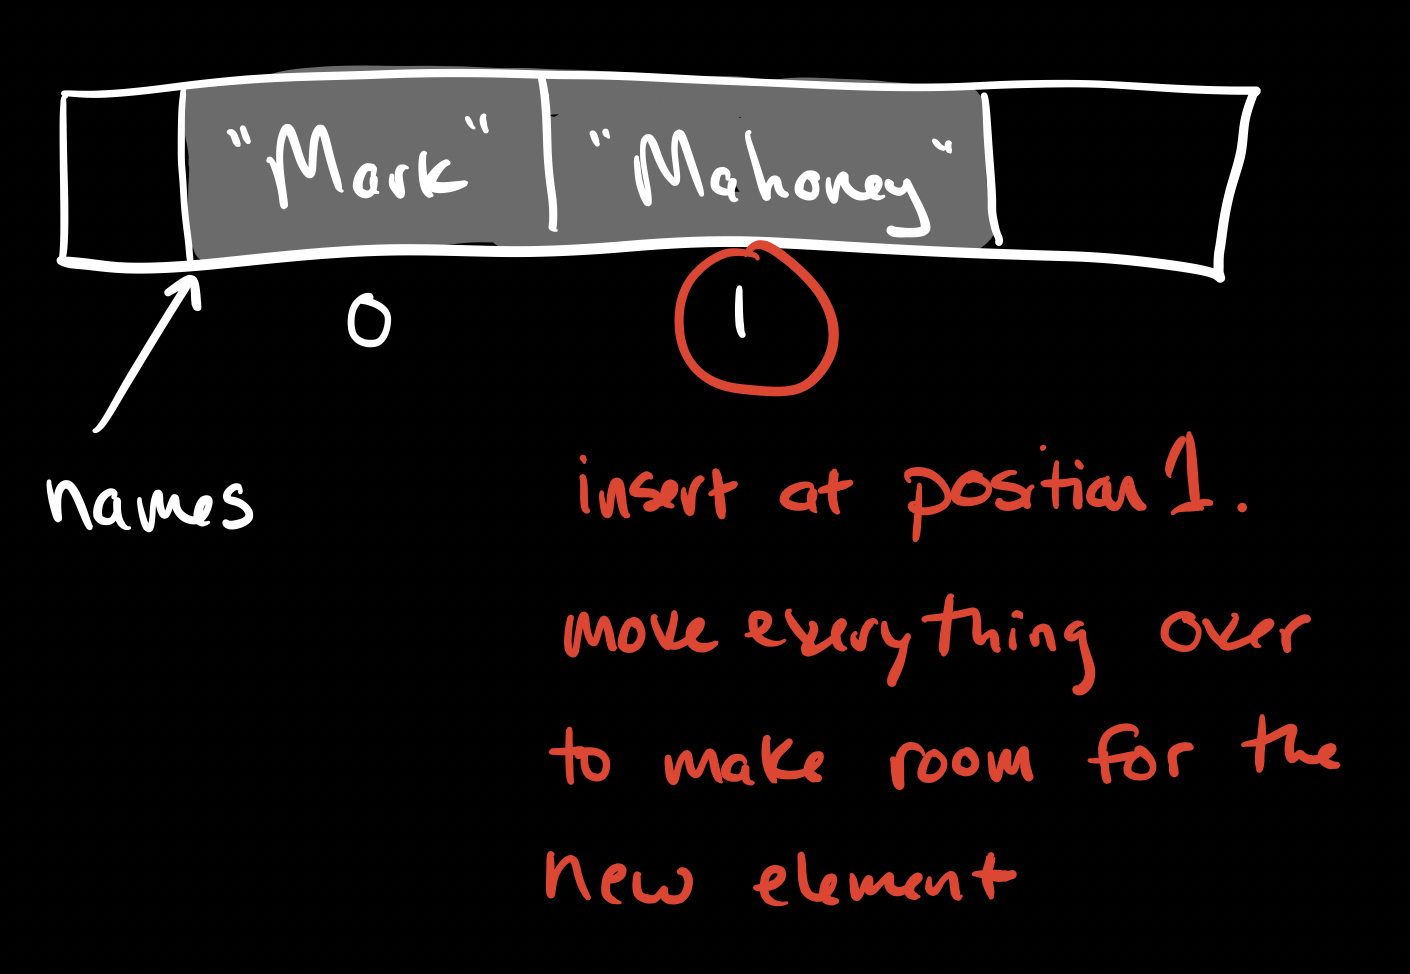 "Mark" "Mahoney"
0 1
names
insert at position 1.
move everything over
to make room for the
new element